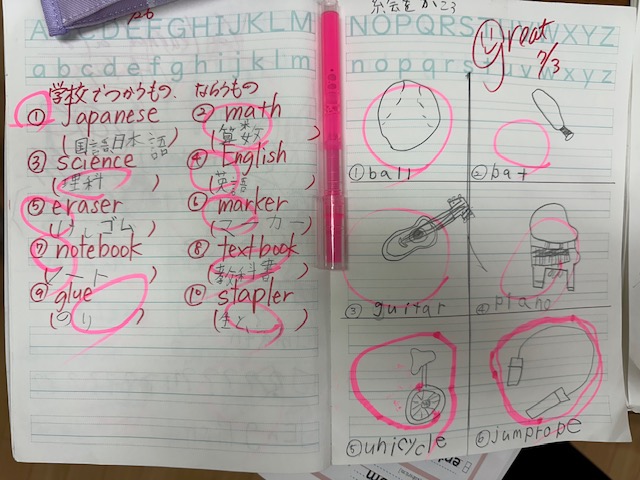 ABCDEFGHIJKLM
abcdefghijklm
学校でつかうもの、ならうもの
① Japanese ② math
(国語日本語) (算数)
③ science ④ English
(理科) (英語)
⑤ eraser ⑥ marker
(けしゴム) (マーカー)
⑦ notebook ⑧ textbook
(ノート) (教科書)
⑨ glue ⑩ stapler
(のり)
NOPQRSTUVWXYZ
nopqrstuvwxyz
Great
7/3
① ball ② bat
③ guitar ④ piano
⑤ unicycle ⑥ jumprope